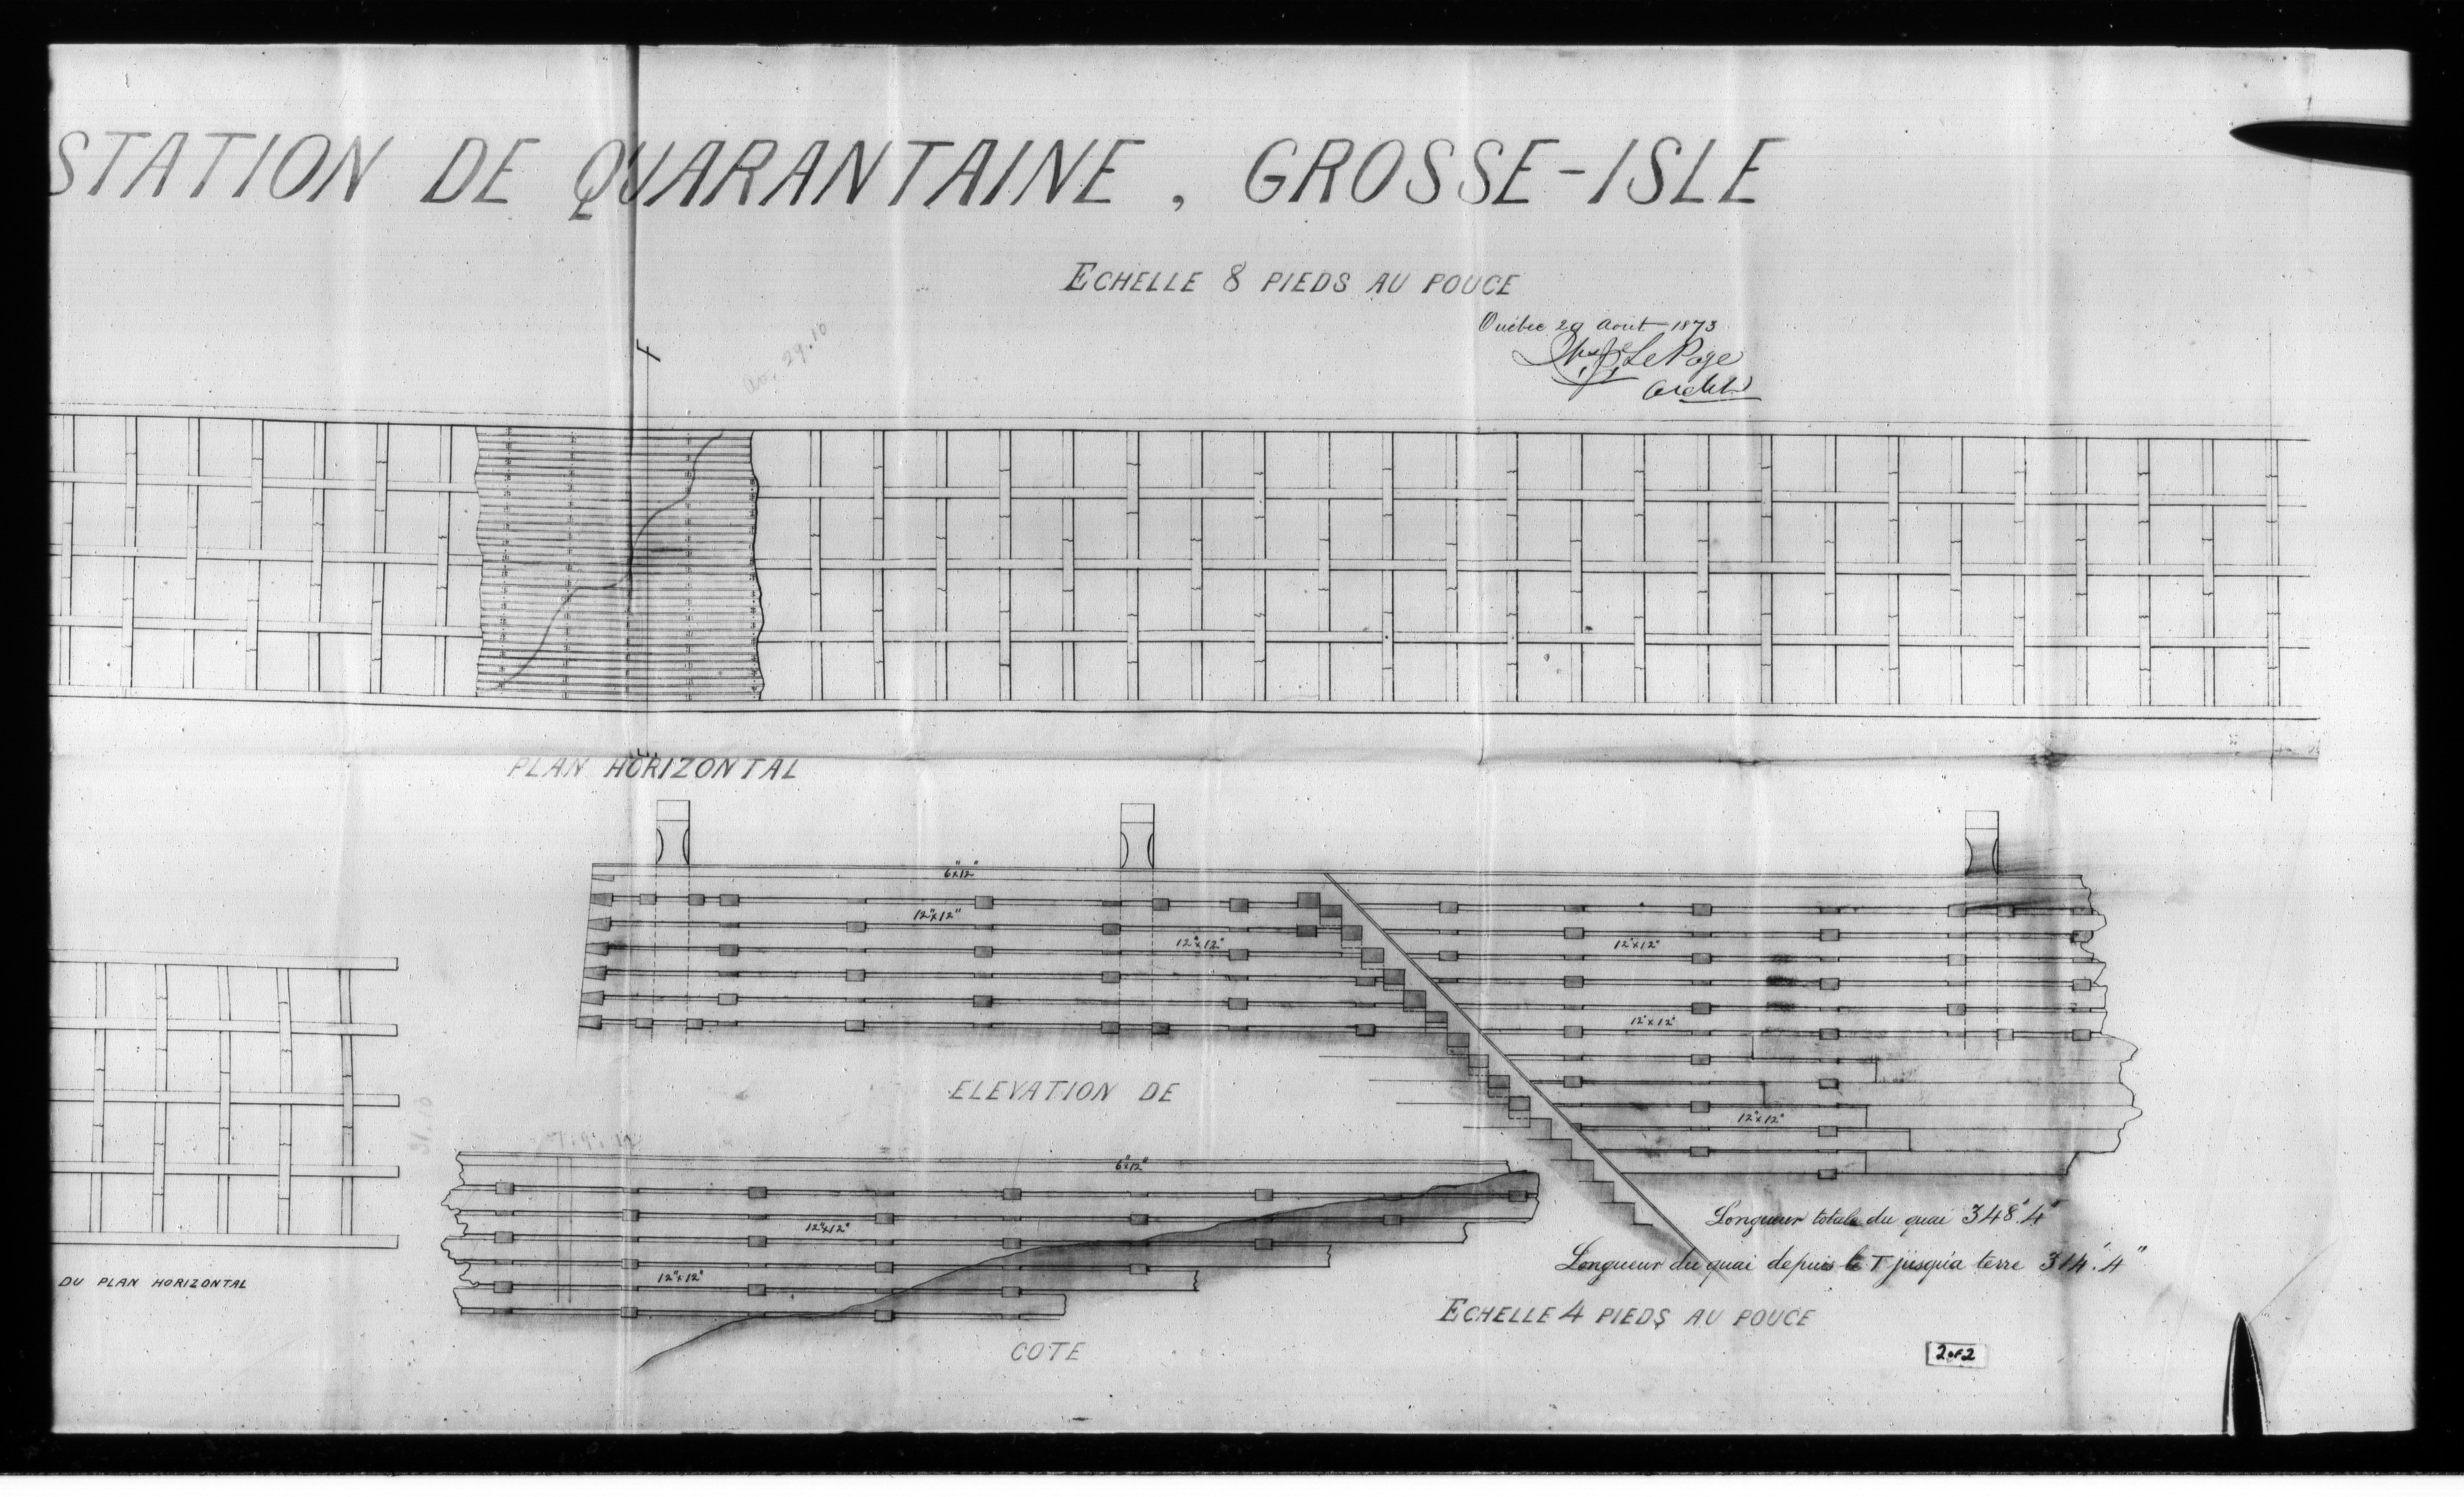 STATION DE QUARANTAINE, GROSSE-ISLE
ECHELLE 8 PIEDS AU POUCE
Québec 29 Août 1873
LePage
Archte
29.10
PLAN HORIZONTAL
6"x12"
12"x12"
12"x12"
12"x12"
12"x12"
12"x12"
ELEVATION DE
6"x12"
12"x12"
12"x12"
Longueur totale du quai 348'.4"
Longueur du quai depuis le T jusqu'à terre 314'.4"
DU PLAN HORIZONTAL
ECHELLE 4 PIEDS AU POUCE
COTE
2 OF 2